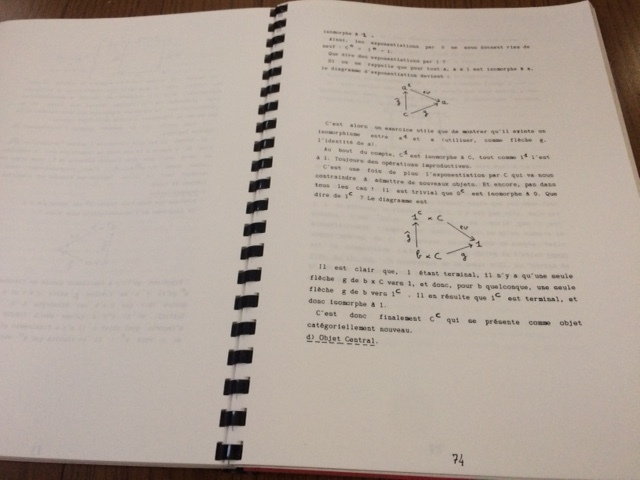 isomorphe à 1.
Alors, les exponentiations par 0 ne nous donnent rien de
neuf : C⁰ = 1⁰ = 1.
Que dire des exponentiations par 1 ?
Si on se rappelle que pour tout a, a x 1 est isomorphe à a,
le diagramme d'exponentiation devient :
a¹ ev a
ĝ
c g
C'est alors un exercice utile que de montrer qu'il existe un
isomorphisme entre a¹ et a (utiliser, comme flèche g,
l'identité de a).
Au bout du compte, C¹ est isomorphe à C, tout comme 1¹ l'est
à 1. Toujours des opérations improductives.
C'est une fois de plus l'exponentiation par C qui va nous
contraindre à admettre de nouveaux objets. Et encore, pas dans
tous les cas ! Il est trivial que 0ᶜ est isomorphe à 0. Que
dire de 1ᶜ ? Le diagramme est
1ᶜ x C ev
ĝ 1
b x C g
Il est clair que, 1 étant terminal, il n'y a qu'une seule
flèche g de b x C vers 1, et donc, pour b quelconque, une seule
flèche g de b vers 1ᶜ . Il en résulte que 1ᶜ est terminal, et
donc isomorphe à 1.
C'est donc finalement Cᶜ qui se présente comme objet
catégoriellement nouveau.
d) Objet Central.
74